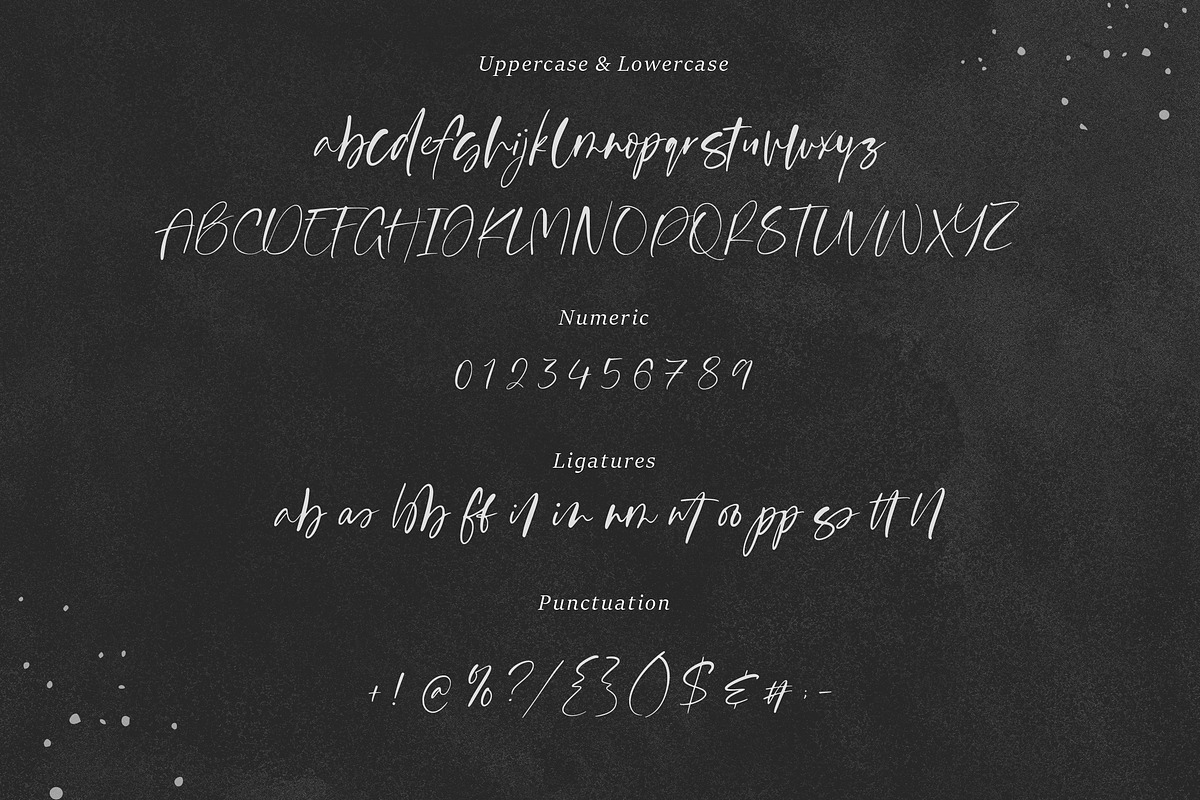 Uppercase & Lowercase
abcdefghijklmnopqrstuvwxyz
ABCDEFGHIJKLMNOPQRSTUVWXYZ
Numeric
0 1 2 3 4 5 6 7 8 9
Ligatures
ab as bb ff il in nm nt oo pp ss tt ll
Punctuation
+ ! @ % ? / { } ( ) $ & # : -